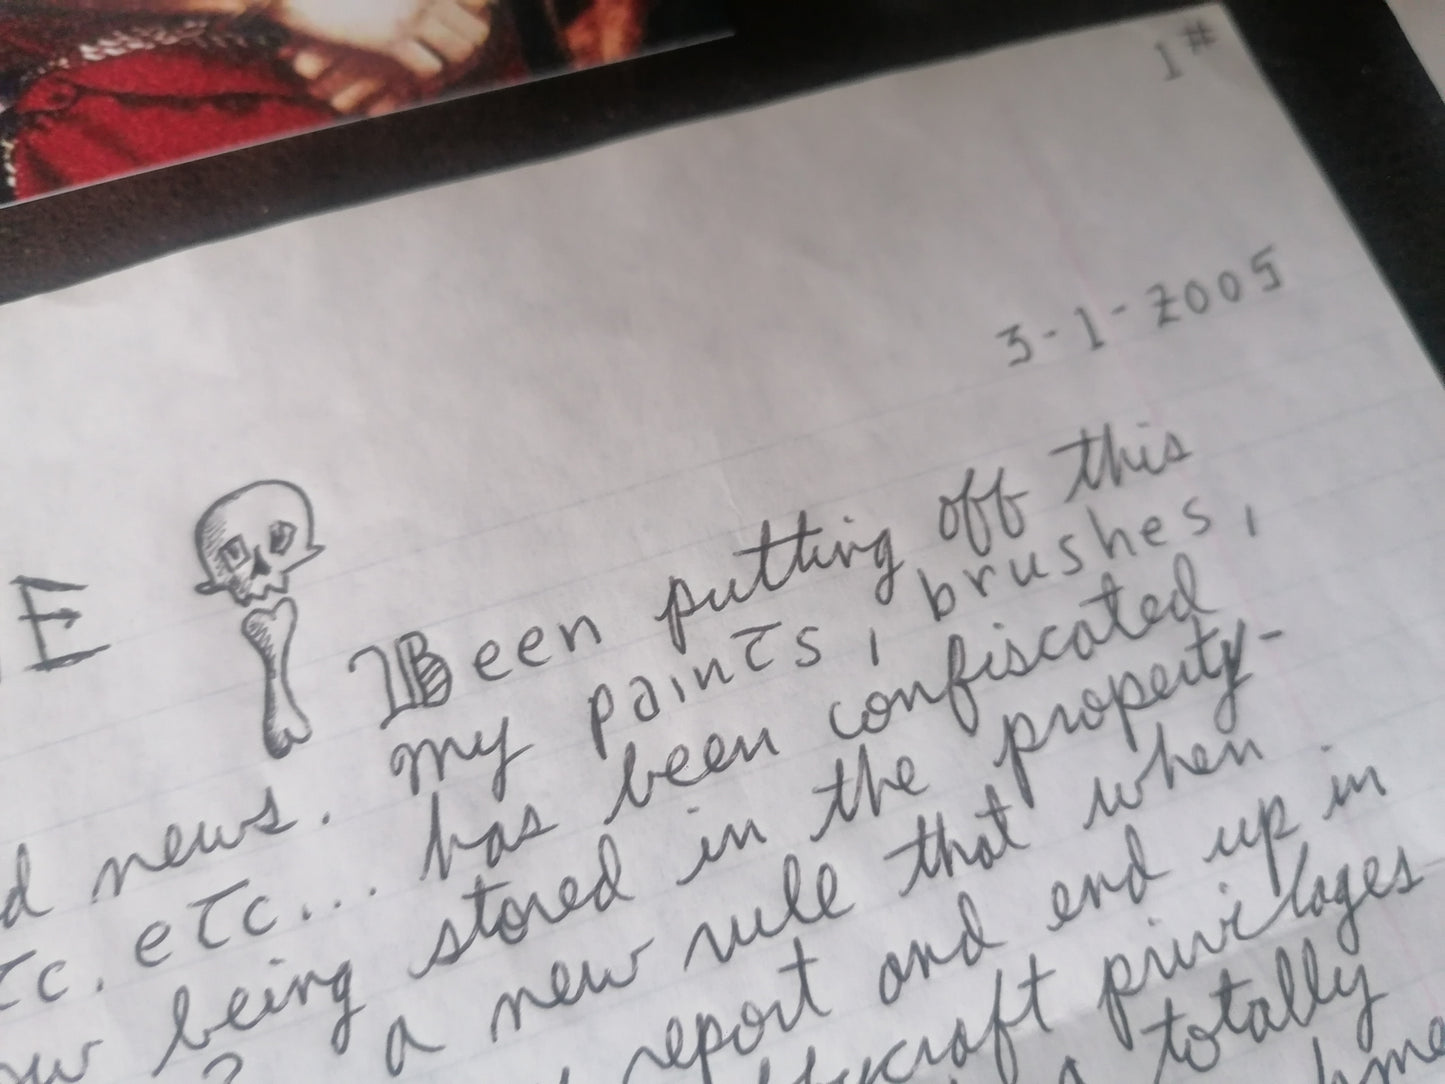 1#
3-1-2005
E Been putting off this
d news. my paints, brushes,
etc... has been confiscated
being stored in the property-
a new rule that when
report and end up in
craft privilages
totally